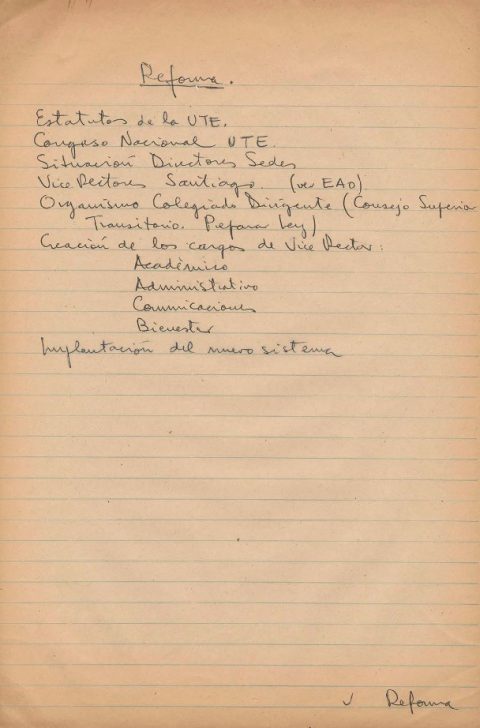 Reforma.
Estatutos de la UTE.
Congreso Nacional UTE
Situación Directores Sedes
Vice Rectores Santiago. (ver EAO)
Organismo Colegiado Dirigente (Consejo Superior
Transitorio. Preparar Ley)
Creación de los cargos de Vice Rector:
Académico
Administrativo
Comunicaciones
Bienestar
Implantación del nuevo sistema
✓ Reforma